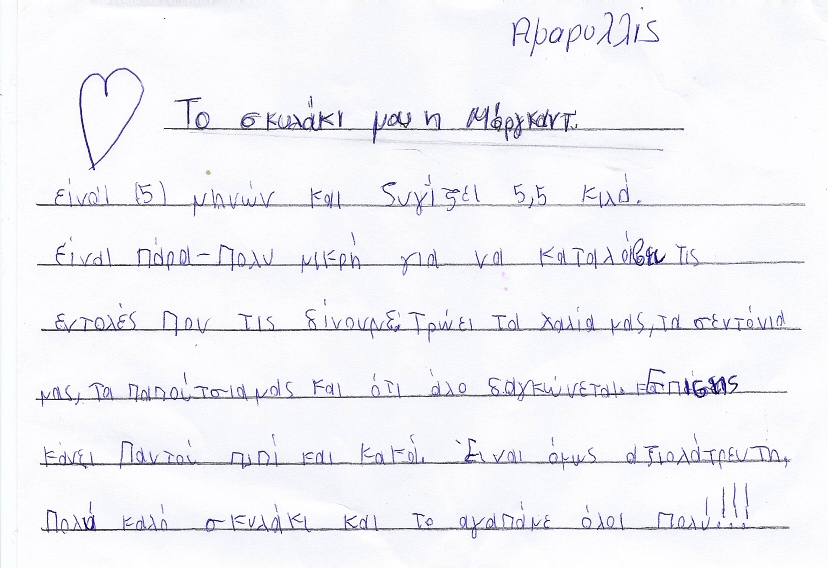 Αμαρυλλίς
Το σκυλάκι μου η Μάργκαντ.
είναι (5) μηνών και ζυγίζει 5,5 κιλά.
Είναι πάρα-πολυ μικρή για να καταλάβει τις
εντολές που τις δίνουμε. Τρώει τα χαλιά μας, τα σεντόνια
μας, τα παπούτσια μας και ότι άλο δαγκώνεται. Επίσης
κάνει παντού πιπί και κακά. Είναι όμως αξιολάτρευτη,
πολύ καλό σκυλάκι και το αγαπάμε όλοι πολύ!!!